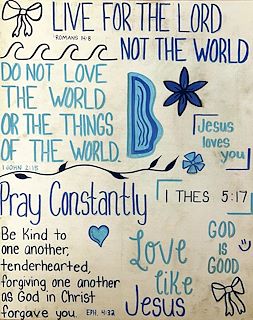 LIVE FOR THE LORD
ROMANS 14:8
NOT THE WORLD
DO NOT LOVE
THE WORLD
OR THE THINGS
OF THE WORLD.
1 JOHN 2:15
Jesus
loves
you
Pray Constantly
1 THES 5:17
Be Kind to
one another,
tenderhearted,
forgiving one another
as God in Christ
forgave you. EPH. 4:32
Love
like
Jesus
GOD
IS
GOOD